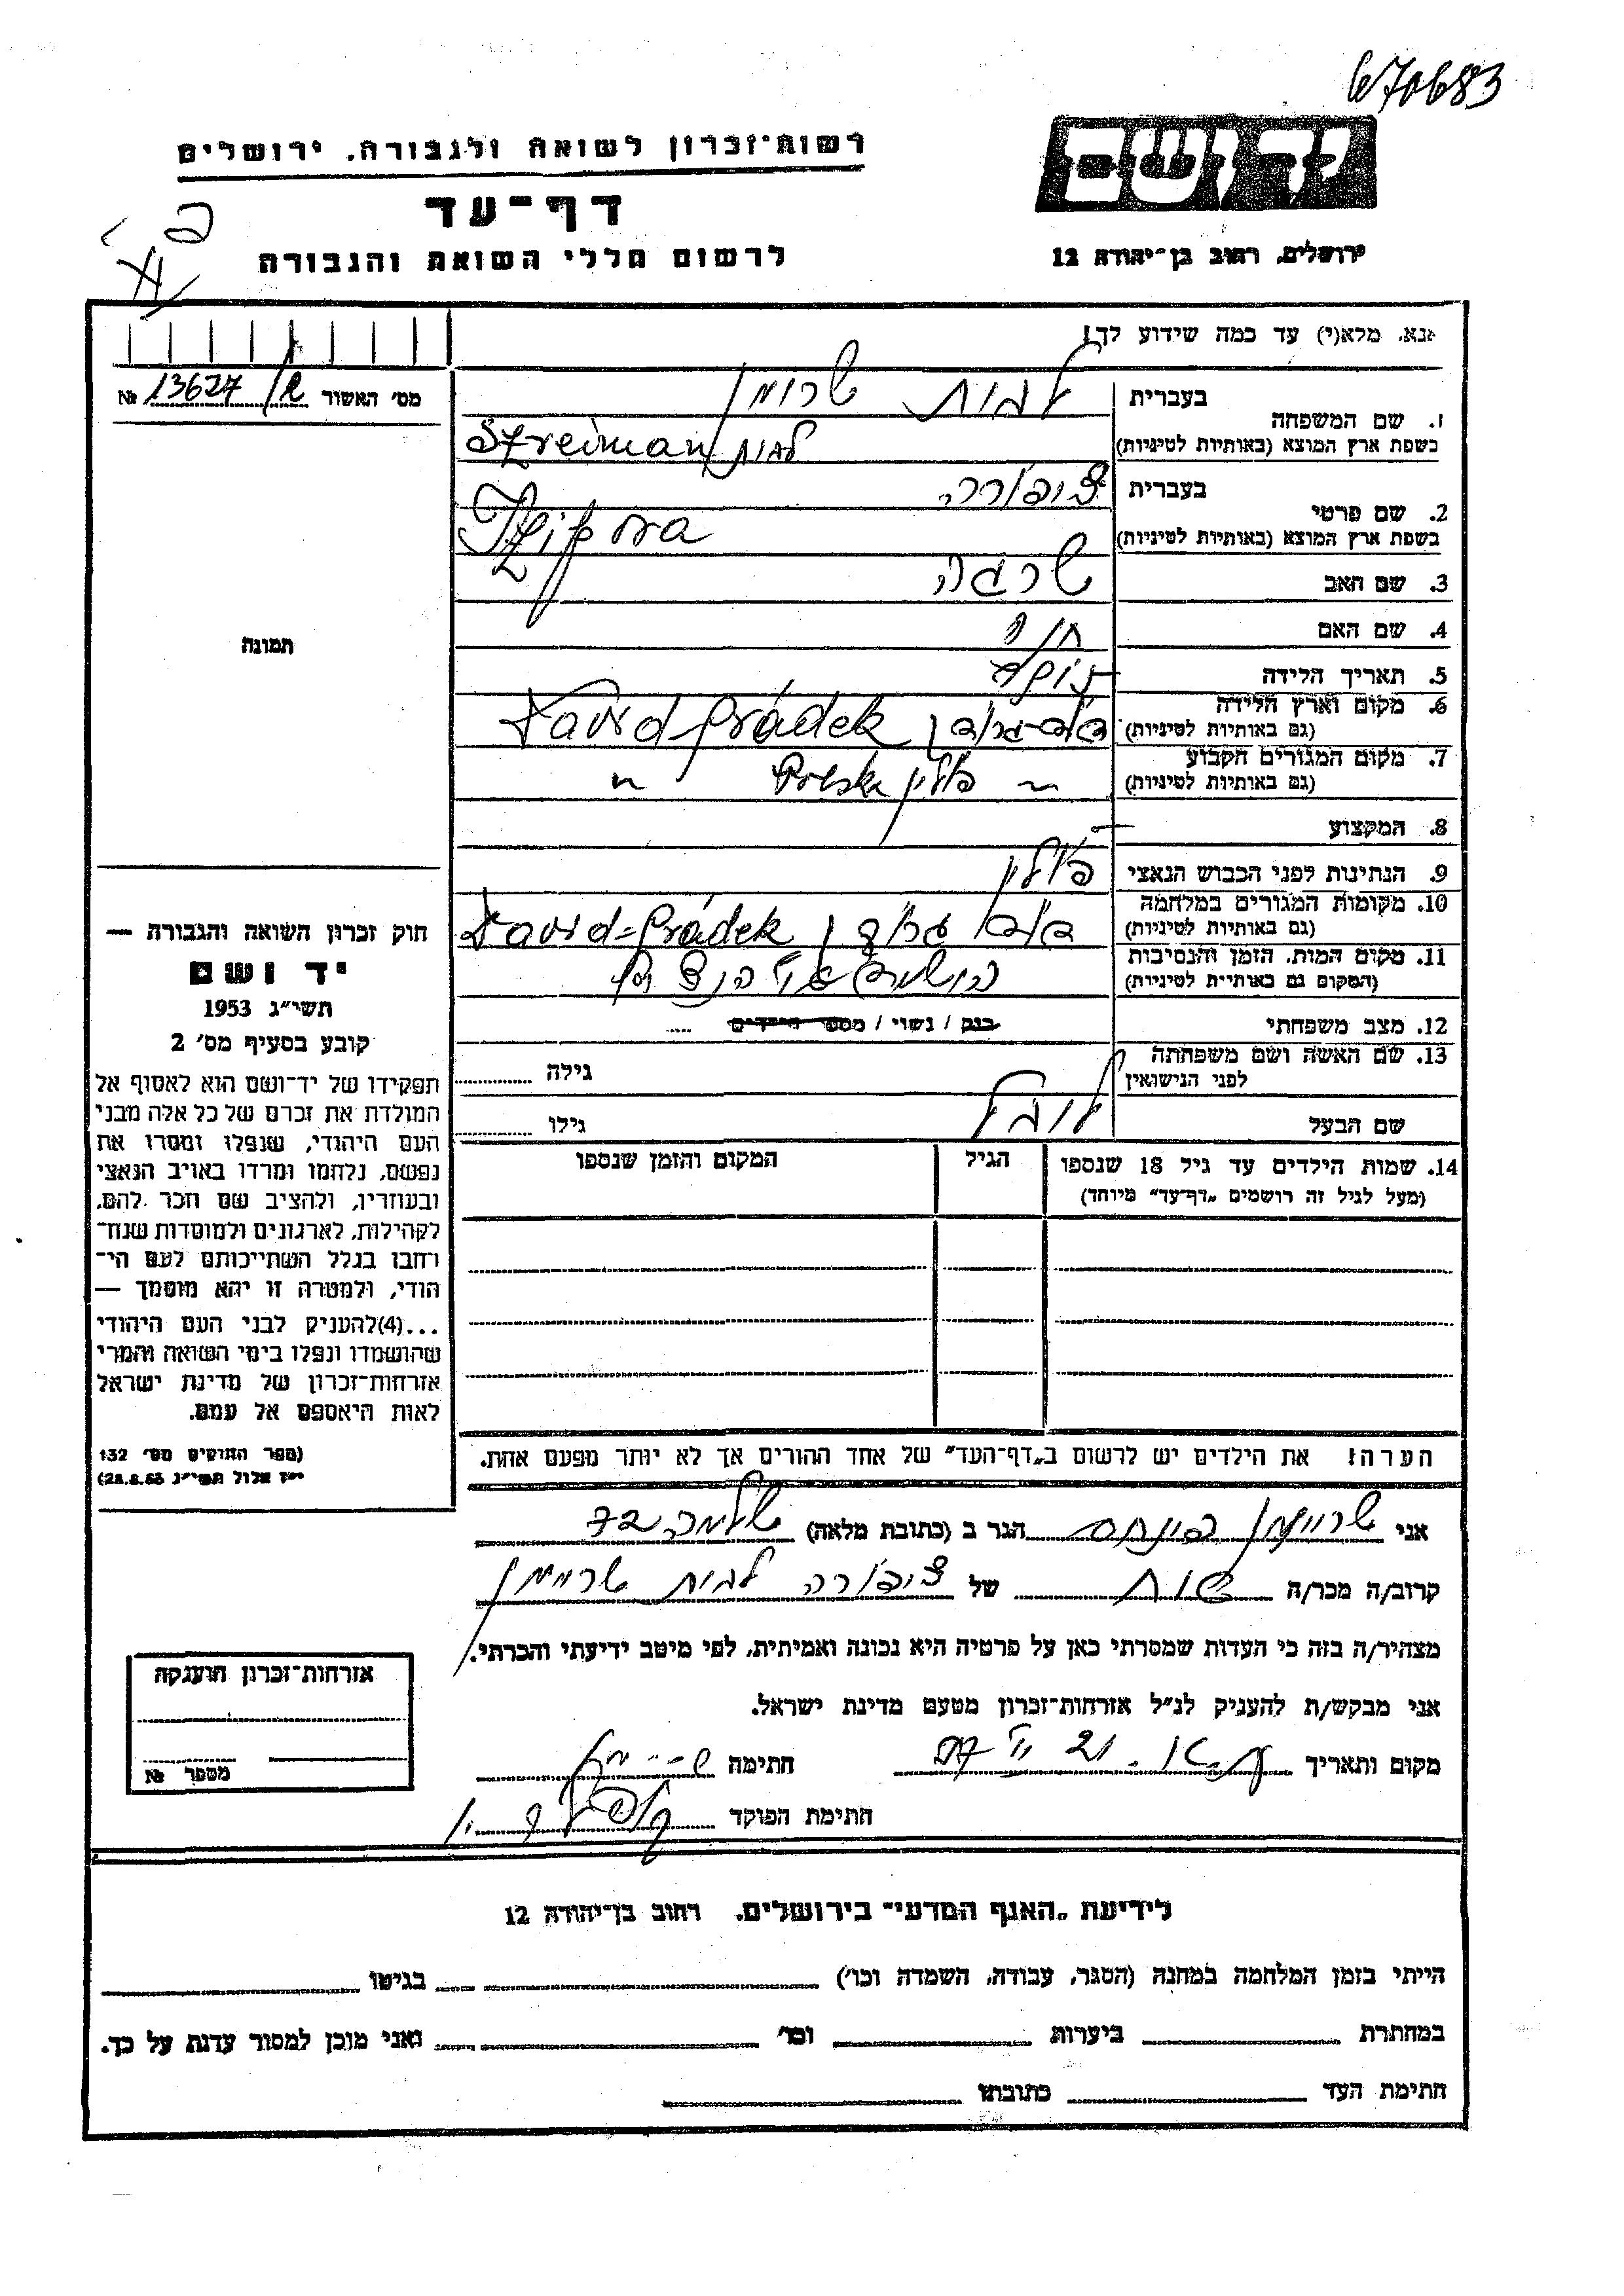 670683
רשות-זכרון לשואה ולגבורה, ירושלים
דף-עד
לרשום חללי השואה והגבורה
יד ושם
ירושלים, רחוב בן-יהודה 12
אנא, מלא(י) עד כמה שידוע לך!
מס' האשור № 13627/
1. שם המשפחה
בעברית לבית שרימן
בשפת ארץ המוצא (באותיות לטיניות) לבית Szreiman
2. שם פרטי
בעברית ציפורה
בשפת ארץ המוצא (באותיות לטיניות) Tzipora
3. שם האב שרגה
4. שם האם
5. תאריך הלידה
6. מקום וארץ הלידה
(גם באותיות לטיניות) Dawid-Grádek
7. מקום המגורים הקבוע
(גם באותיות לטיניות) ~ פולין Polska "
8. המקצוע —
9. הנתינות לפני הכבוש הנאצי פולין
10. מקומות המגורים במלחמה
(גם באותיות לטיניות) Dawid-Grádek
11. מקום המות, הזמן והנסיבות
(המקום גם באותיות לטיניות)
12. מצב משפחתי רווק / נשוי / מספר הילדים
13. שם האשה ושם משפחתה
לפני הנישואין גילה
שם הבעל גילו
14. שמות הילדים עד גיל 18 שנספו הגיל המקום והזמן שנספו
(מעל לגיל זה רושמים „דף-עד" מיוחד)
הערה: את הילדים יש לרשום ב„דף-העד" של אחד ההורים אך לא יותר מפעם אחת.
תמונה
חוק זכרון השואה והגבורה —
יד ושם
תשי"ג 1953
קובע בסעיף מס' 2
תפקידו של יד-ושם הוא לאסוף אל
המולדת את זכרם של כל אלה מבני
העם היהודי, שנפלו ומסרו את
נפשם, נלחמו ומרדו באויב הנאצי
ובעוזריו, ולהציב שם וזכר להם,
לקהילות, לארגונים ולמוסדות שנח-
רבו בגלל השתייכותם לעם הי-
הודי, ולמטרה זו יהא מוסמך —
...(4) להעניק לבני העם היהודי
שהושמדו ונפלו בימי השואה והמרי
אזרחות-זכרון של מדינת ישראל
לאות היאספם אל עמם.
(ספר החוקים מס' 132
י"ז אלול תשי"ג 28.8.53)
אני שריימן פנחס הגר ב (כתובת מלאה) שלמה 72
קרוב/ה מכר/ה של ציפורה לבית שריימן
מצהיר/ה בזה כי העדות שמסרתי כאן על פרטיה היא נכונה ואמיתית, לפי מיטב ידיעתי והכרתי.
אני מבקש/ת להעניק לנ"ל אזרחות-זכרון מטעם מדינת ישראל.
מקום ותאריך חתימה
חתימת הפוקד
אזרחות-זכרון הוענקה
מספר №
לידיעת „האגף המדעי" בירושלים, רחוב בן-יהודה 12
הייתי בזמן המלחמה במחנה (הסגר, עבודה, השמדה וכו') בגיטו
במחתרת ביערות וכו' ואני מוכן למסור עדות על כך.
חתימת העד כתובתו